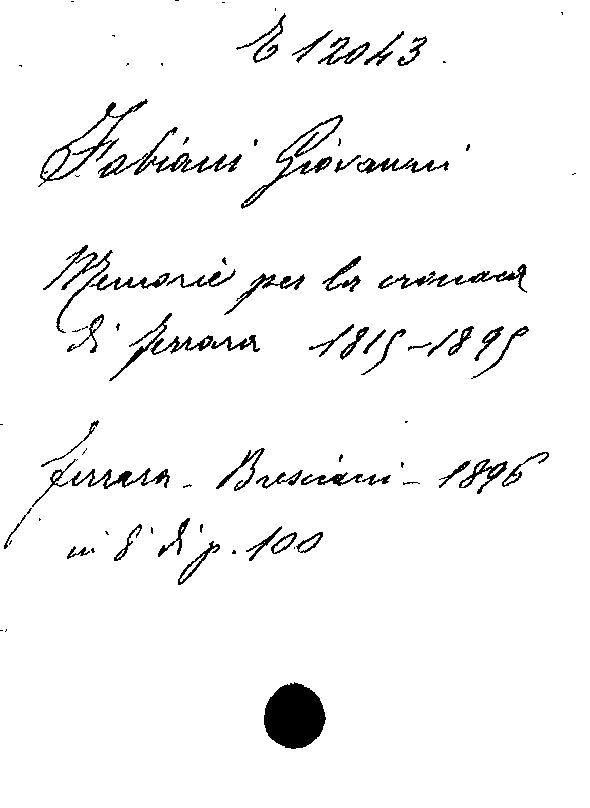 E 12043
Fabiani Giovanni
Memorie per la cronaca
di Ferrara 1815-1895
Ferrara - Bresciani - 1896
in 8° di p. 100